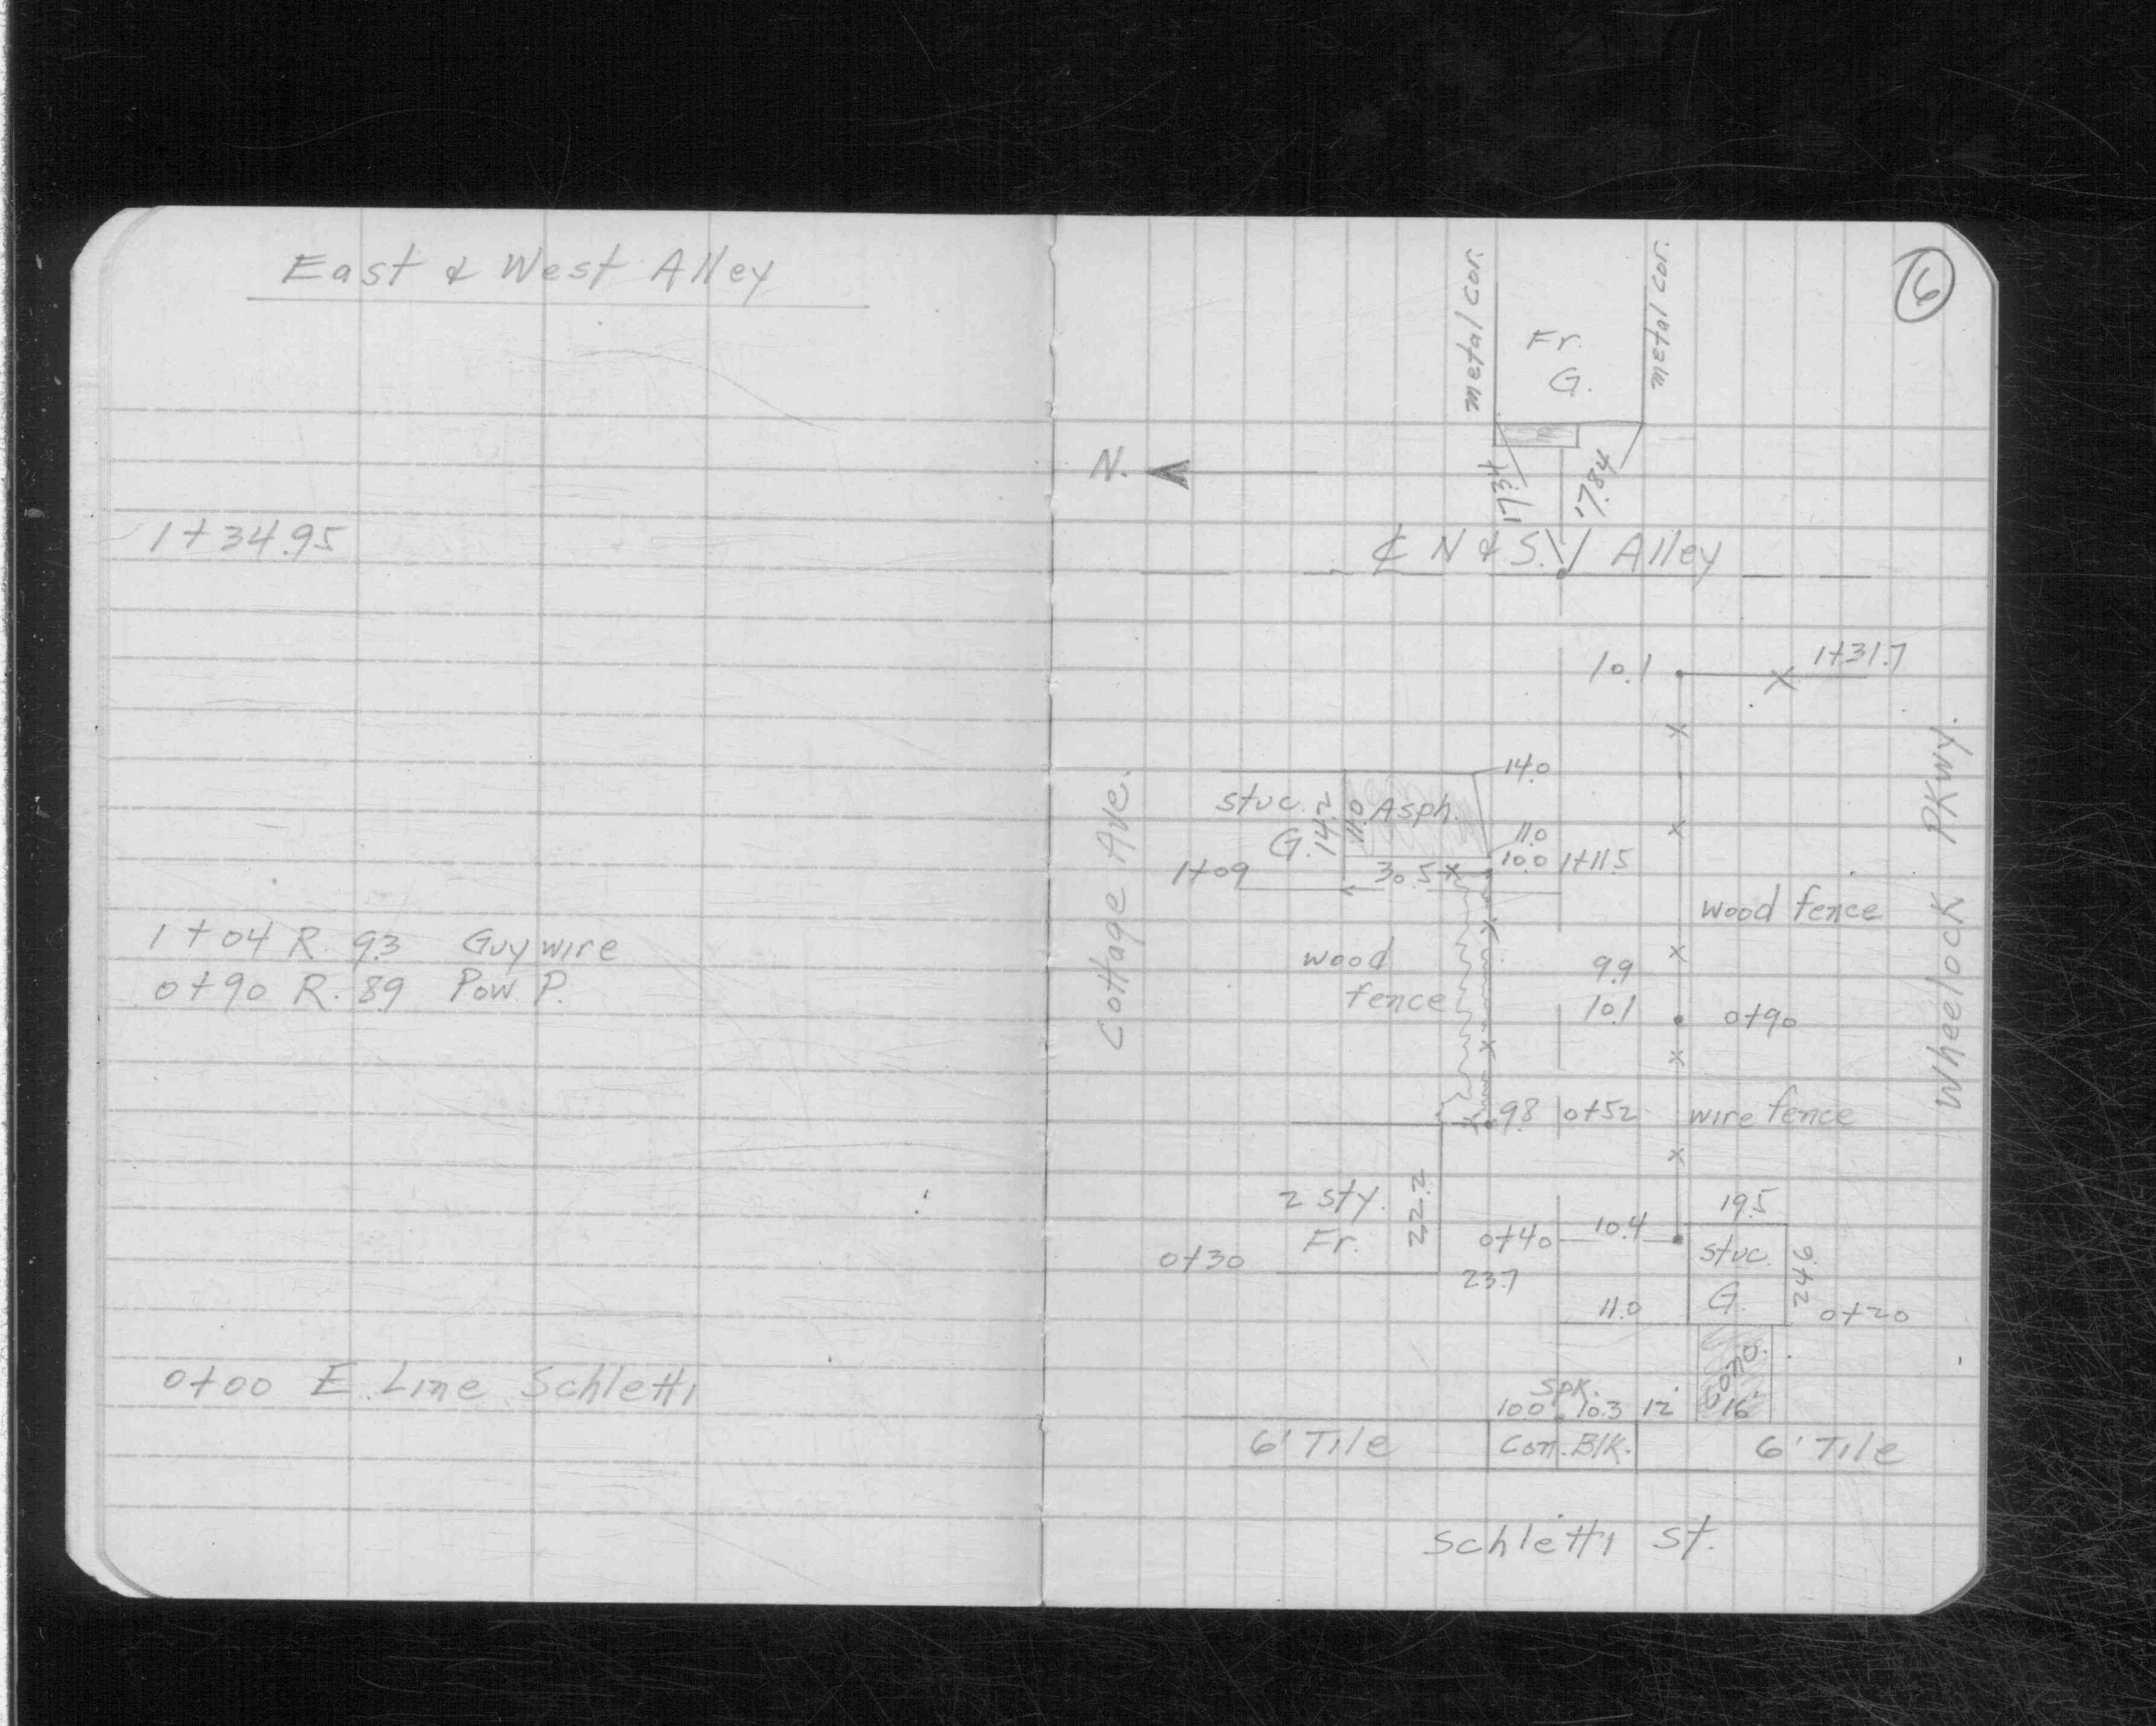 East & West Alley
1+34.95
1+04 R. 9.3 Guy wire
0+90 R. 8.9 Pow. P.
0+00 E. Line Schletti
6
metal cor.
Fr.
G.
metal cor.
N.
17.34
17.84
℄ N & S. Alley
10.1
1+31.7
14.0
Stuc.
G.
14.2
11.0
Asph.
11.0
10.0 1+11.5
1+09
30.5
Cottage Ave.
Wheelock PKwy.
wood fence
wood
fence
9.9
10.1
0+90
9.8 0+52
wire fence
2 sty.
Fr.
22.2
0+30
23.7
0+40
10.4
19.5
stuc.
G.
24.6
11.0
0+20
Conc.
16'
Spk.
10.0 10.3 12'
6' Tile
Con. Blk.
6' Tile
Schletti St.